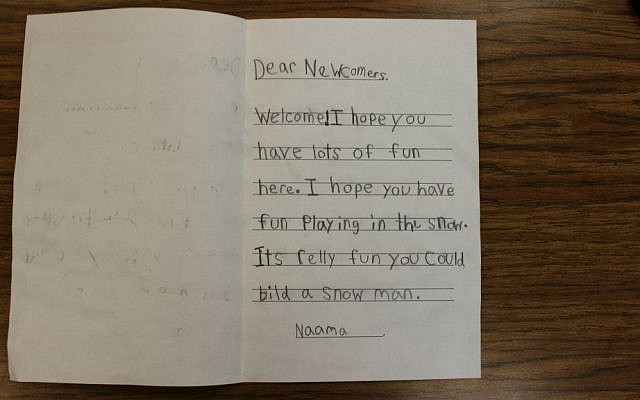 Dear Newcomers.
Welcome! I hope you
have lots of fun
here. I hope you have
fun Playing in the snow.
Its relly fun you Could
bild a snow man.
Naama